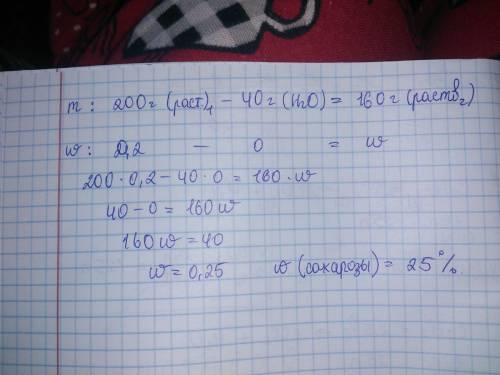 m: 200г (раст)₁ - 40г (H₂O) = 160г (раств₂)
w: 0,2 - 0 = w
200·0,2-40·0=160·w
40-0=160w
160w=40
w=0,25 w (сахарозы) = 25%.